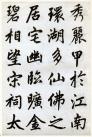 秀麗甲於江南
環湖多仙佛之
居宅幽臨曠金
碧相望宗祠太